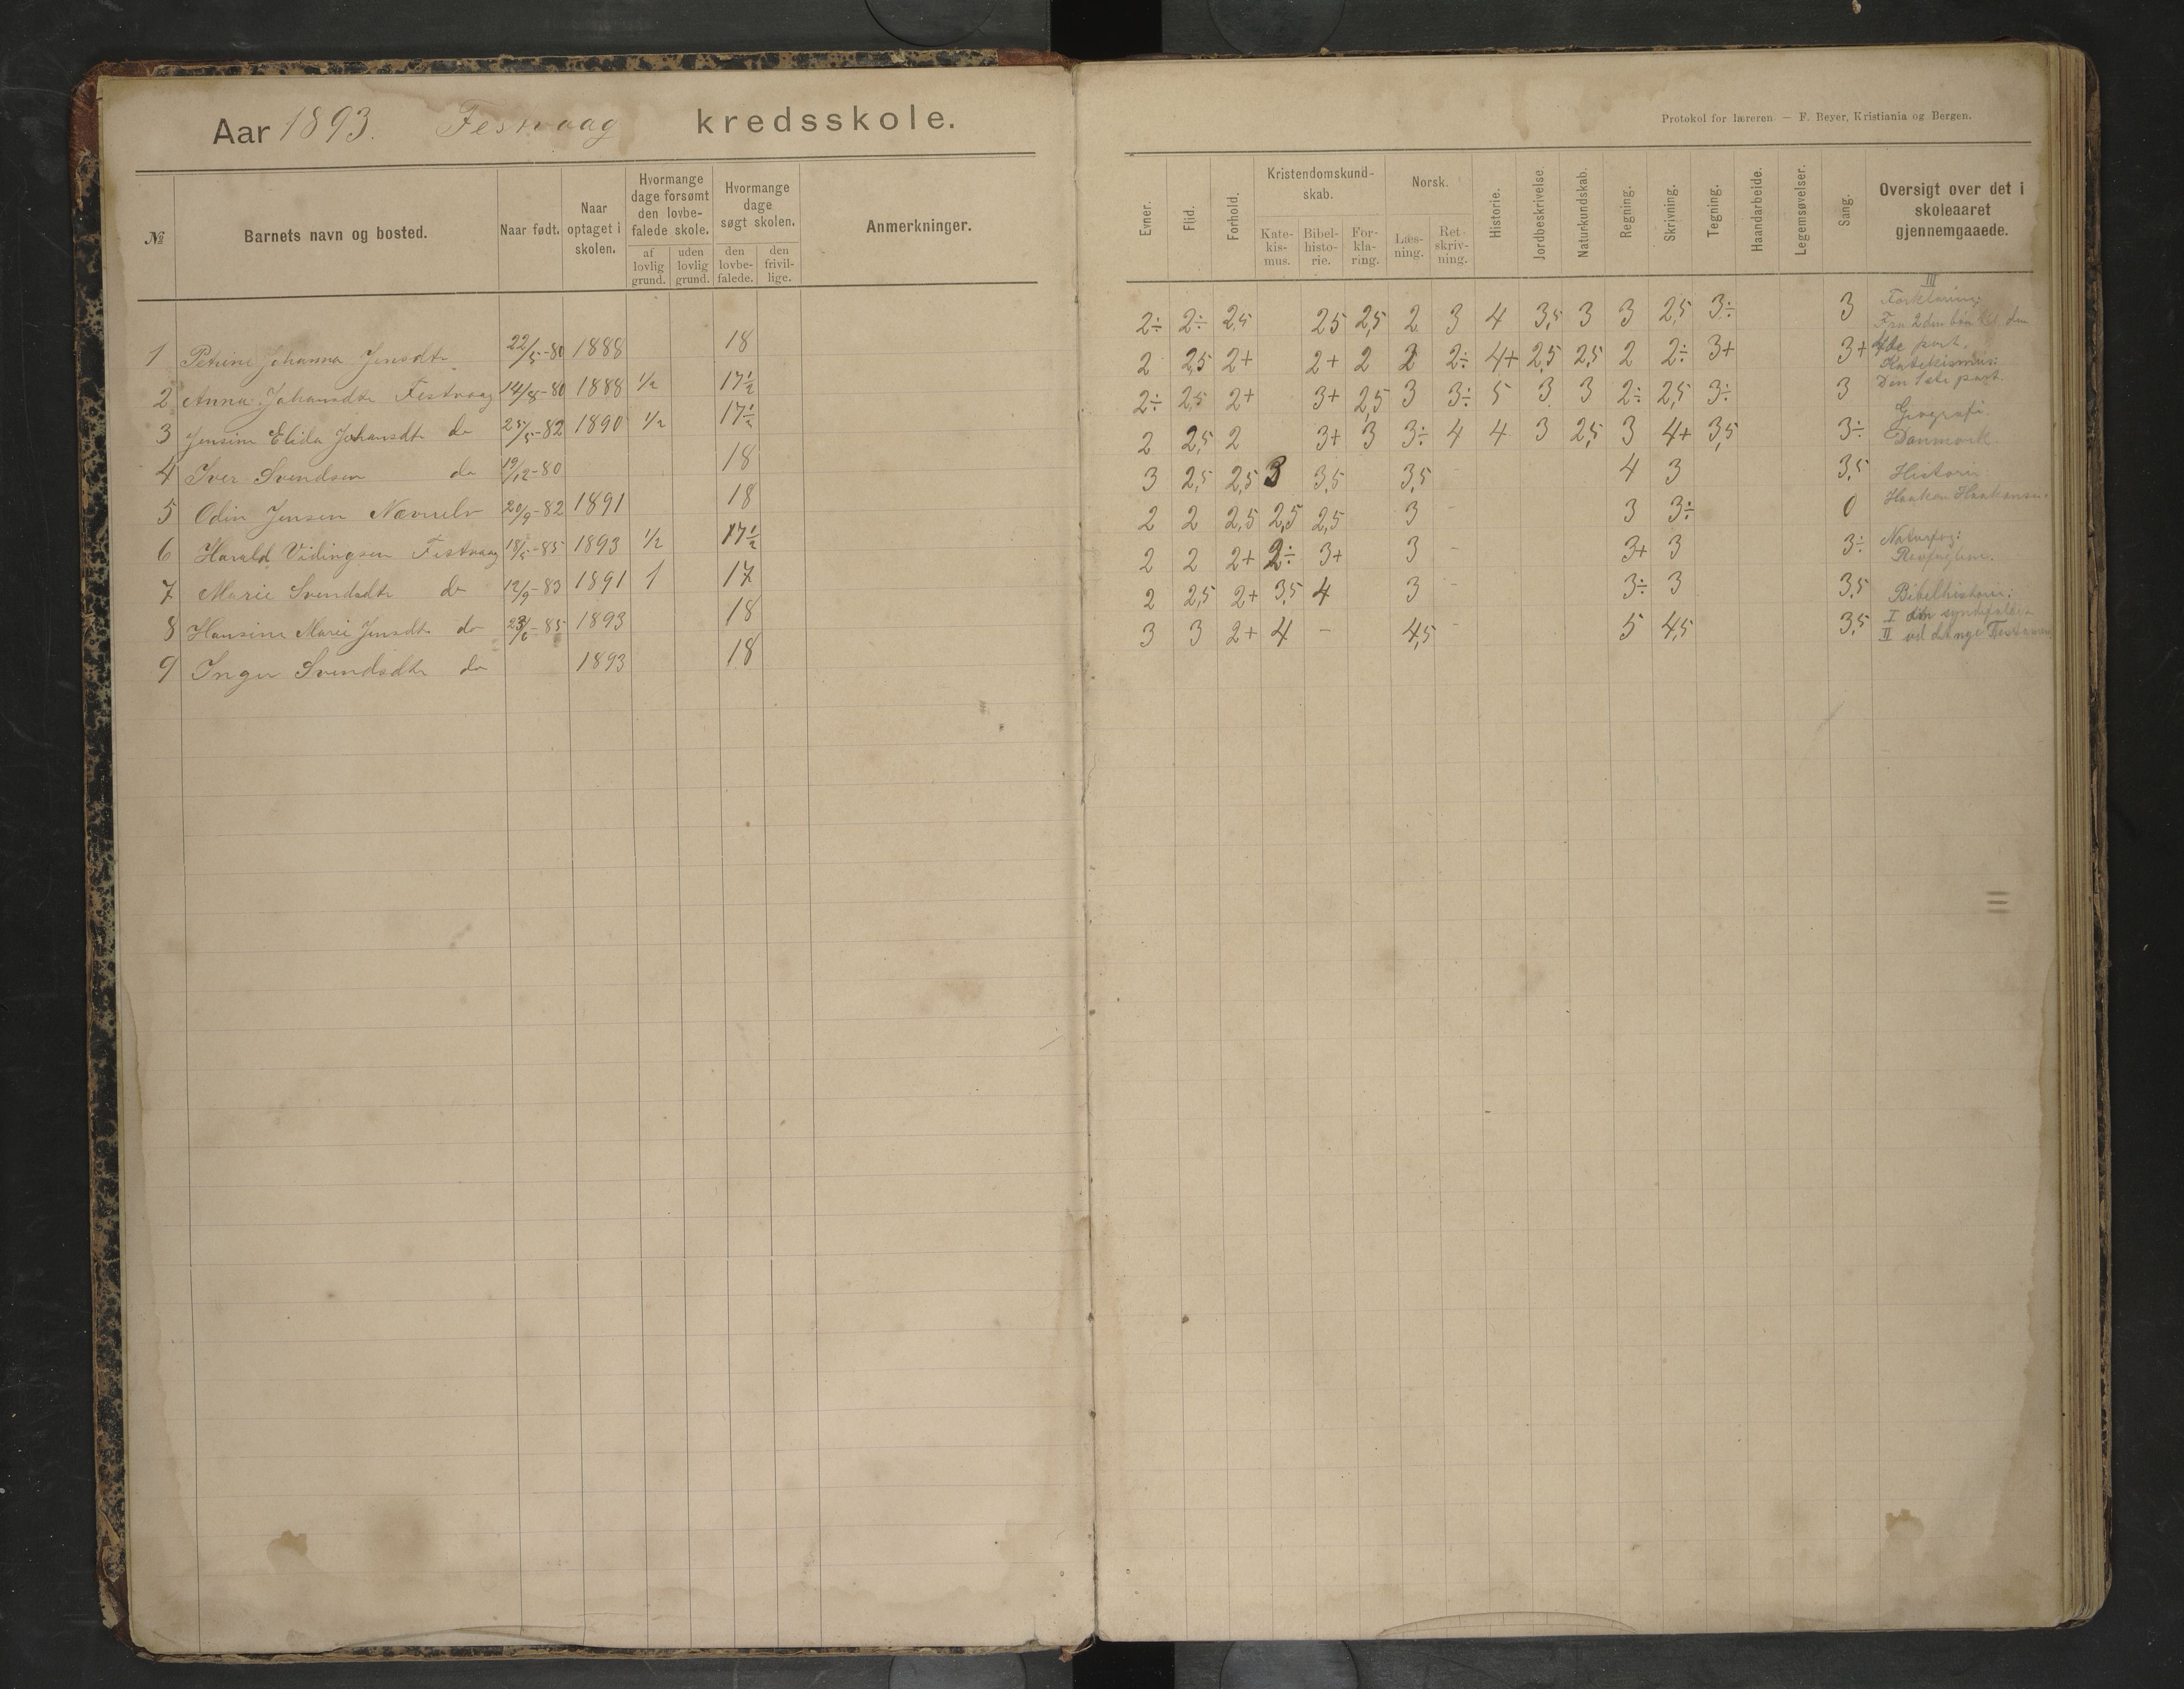 Aar 1893. Fesvaag kredsskole.
№ Barnets navn og bosted. Naar født. Naar optaget i skolen. Hvormange dage forsømt den lovbefalede skole. af lovlig grund. uden lovlig grund. Hvormange dage søgt skolen. den lovbefalede. den frivillige. Anmerkninger.
1 Petrine Johanna Jensdtr 22/5-80 1888 18
2 Anna Johansdtr Festvaag 14/8-80 1888 1/2 17 1/2
3 Jensine Elida Johansdtr do 25/5-82 1890 1/2 17 1/2
4 Iver Svendsen do 19/12-80 18
5 Odin Jensen 20/9-82 1891 18
6 Harald Vidingsen Festvaag 18/5-85 1893 1/2 17 1/2
7 Marie Svendsdtr do 12/9-83 1891 1 17
8 Hansine Marie Jensdtr do 23/6-85 1893 18
9 Inger Svendsdtr do 1893 18
Protokol for læreren — F. Beyer, Kristiania og Bergen.
Evner. Flid. Forhold. Kristendomskundskab. Katekismus. Bibelhistorie. Forklaring. Norsk. Læsning. Retskrivning. Historie. Jordbeskrivelse. Naturkundskab. Regning. Skrivning. Tegning. Haandarbeide. Legemsøvelser. Sang. Oversigt over det i skoleaaret gjennemgaaede.
2÷ 2÷ 2,5 2,5 2,5 2 3 4 3,5 3 3 2,5 3÷ 3
2 2,5 2+ 2+ 2 2 2÷ 4+ 2,5 2,5 2 2÷ 3+ 3+
2÷ 2,5 2+ 3+ 2,5 3 3÷ 5 3 3 2÷ 2,5 3÷ 3
2 2,5 2 3+ 3 3÷ 4 4 3 2,5 3 4+ 3,5 3÷
3 2,5 2,5 3 3,5 3,5 - 4 3 3,5
2 2 2,5 2,5 2,5 3 - 3 3÷ 0
2 2 2+ 2÷ 3+ 3 - 3+ 3 3÷
2 2,5 2+ 3,5 4 3 - 3÷ 3 3,5
3 3 2+ 4 - 4,5 - 5 4,5 3,5
III
Forklaring:
Fra 2den den
4de part.
Katekismus:
Den 1ste part.
Geografi.
Danmark.
Historie:
Haakon Haakonsen.
Naturfag:
Bibelhistorie:
I syndefaldet
II